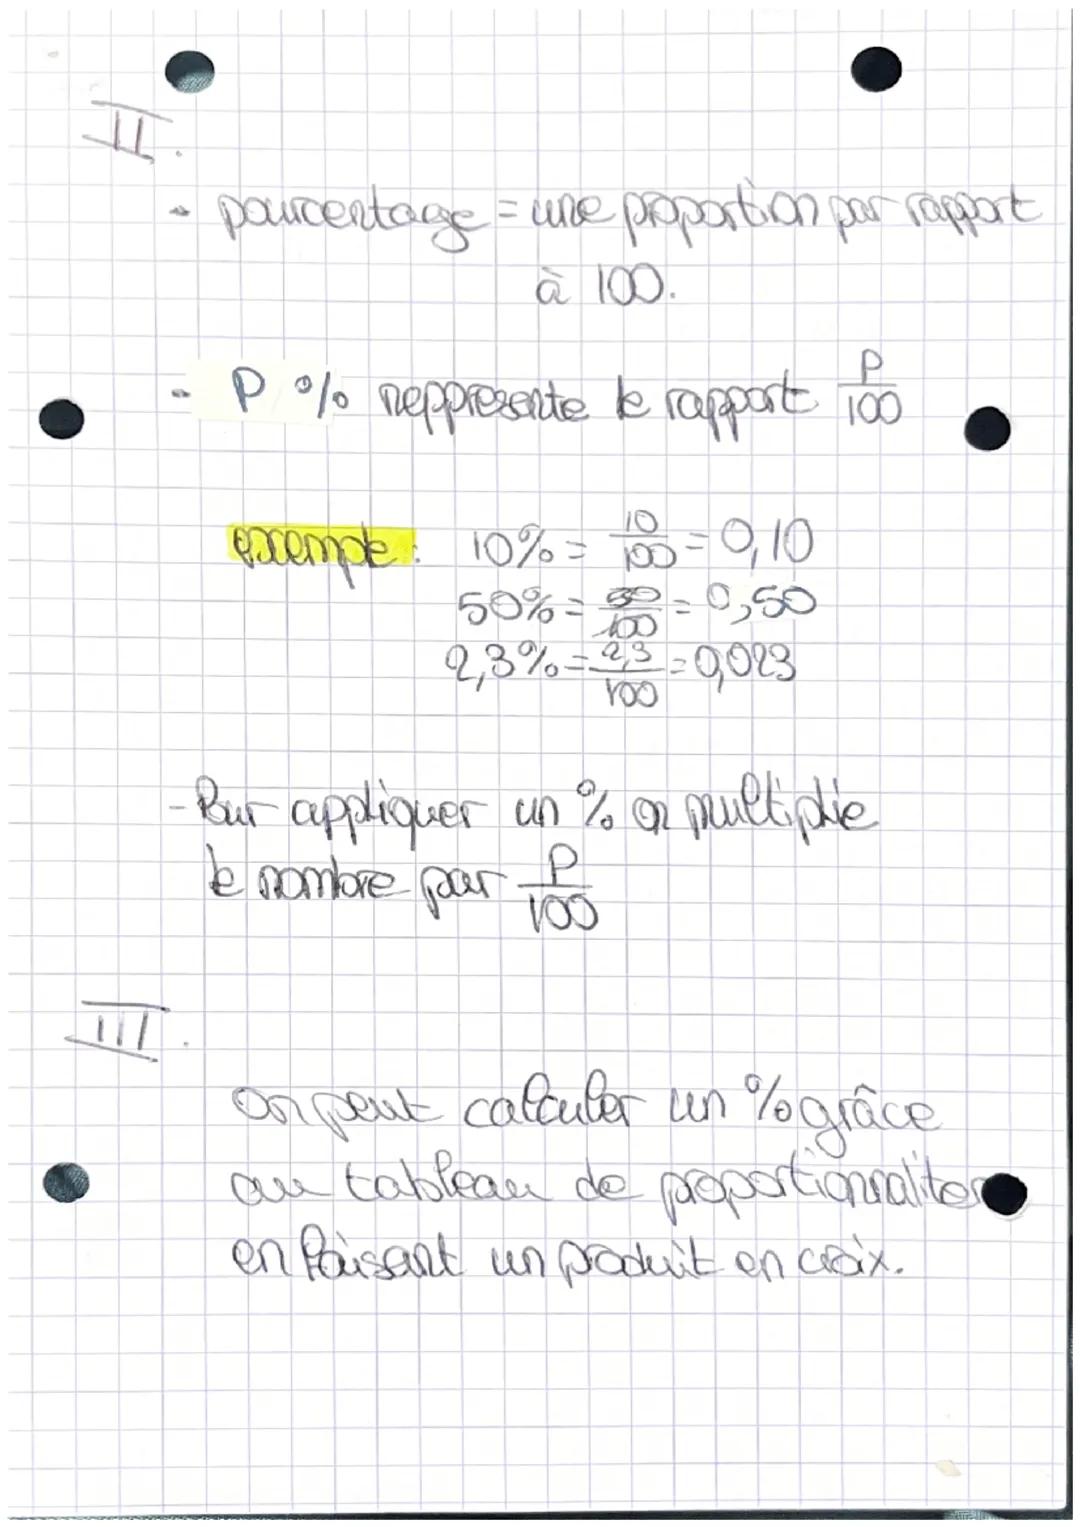 II.
- pourcentage = une proportion par rapport
à 100.
- P % reppresente le rapport P/100
exemple : 10% = 10/100 = 0,10
50% = 50/100 = 0,50
2,3% = 2,3/100 = 0,023
- Pour appliquer un % on multiplie
le nombre par P/100
III.
on peut calculer un % grâce
au tableau de proportionnaliter
en faisant un produit en croix.